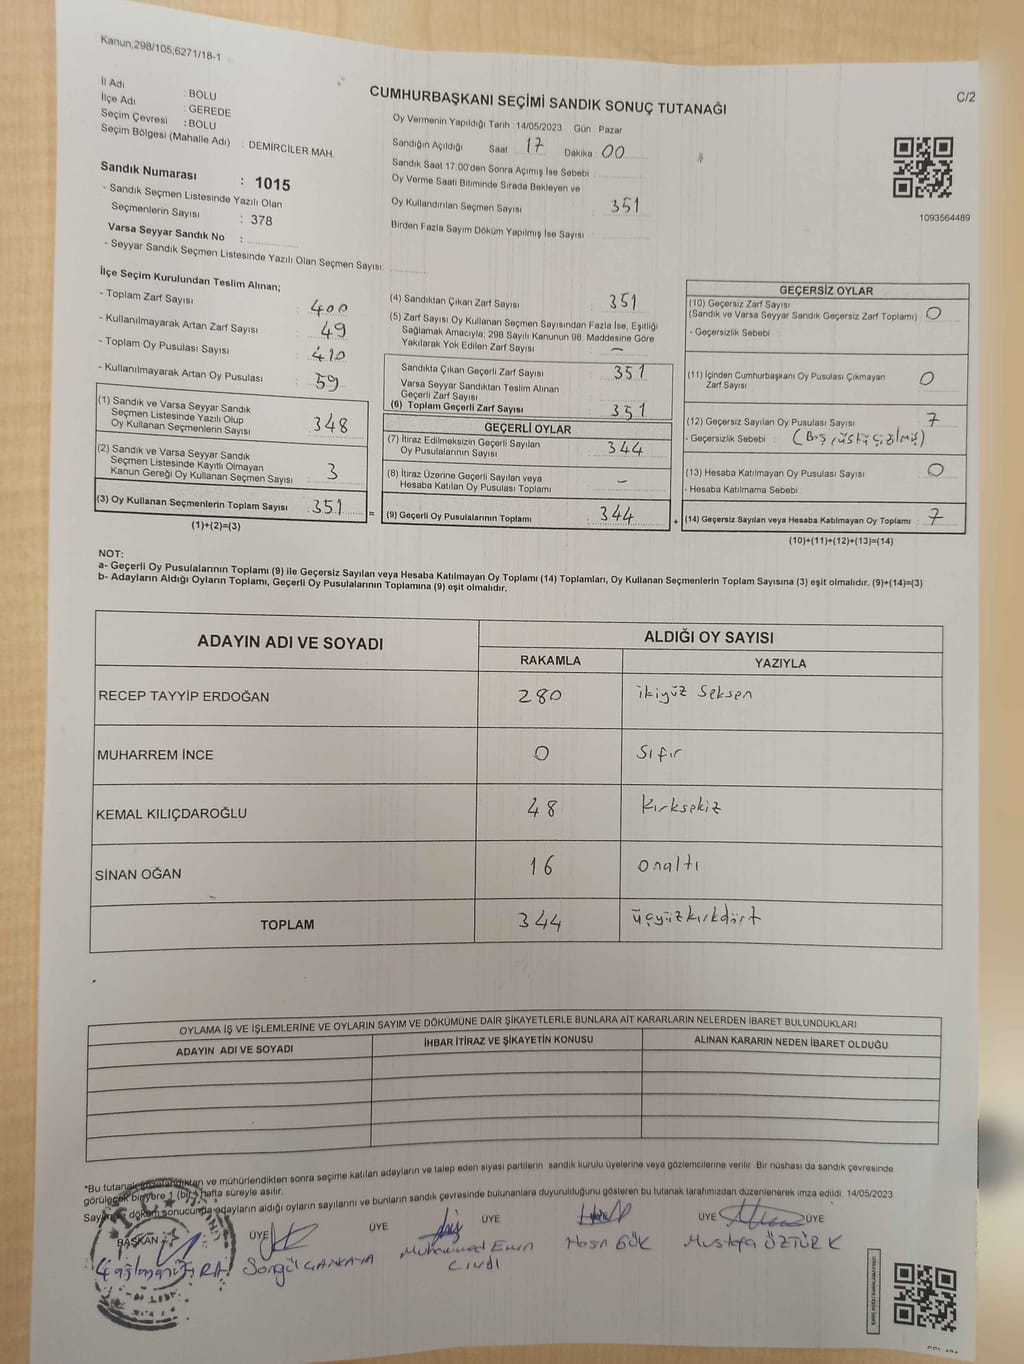 Kanun;298/105;6271/18-1
C/2
CUMHURBAŞKANI SEÇİMİ SANDIK SONUÇ TUTANAĞI
İl Adı : BOLU
İlçe Adı : GEREDE
Seçim Çevresi : BOLU
Seçim Bölgesi (Mahalle Adı) : DEMİRCİLER MAH.
Sandık Numarası : 1015
- Sandık Seçmen Listesinde Yazılı Olan
Seçmenlerin Sayısı : 378
Varsa Seyyar Sandık No :
- Seyyar Sandık Seçmen Listesinde Yazılı Olan Seçmen Sayısı:
Oy Vermenin Yapıldığı Tarih : 14/05/2023 Gün : Pazar
Sandığın Açıldığı Saat : 17 Dakika : 00
Sandık Saat 17:00'den Sonra Açımış İse Sebebi :
Oy Verme Saati Bitiminde Sırada Bekleyen ve
Oy Kullandırılan Seçmen Sayısı : 351
Birden Fazla Sayım Döküm Yapılmış İse Sayısı :
1093564489
İlçe Seçim Kurulundan Teslim Alınan;
- Toplam Zarf Sayısı : 400
- Kullanılmayarak Artan Zarf Sayısı : 49
- Toplam Oy Pusulası Sayısı : 410
- Kullanılmayarak Artan Oy Pusulası : 59
(1) Sandık ve Varsa Seyyar Sandık
Seçmen Listesinde Yazılı Olup
Oy Kullanan Seçmenlerin Sayısı : 348
(2) Sandık ve Varsa Seyyar Sandık
Seçmen Listesinde Kayıtlı Olmayan
Kanun Gereği Oy Kullanan Seçmen Sayısı : 3
(3) Oy Kullanan Seçmenlerin Toplam Sayısı : 351
(1)+(2)=(3)
=
(4) Sandıktan Çıkan Zarf Sayısı : 351
(5) Zarf Sayısı Oy Kullanan Seçmen Sayısından Fazla İse, Eşitliği
Sağlamak Amacıyla; 298 Sayılı Kanunun 98. Maddesine Göre
Yakılarak Yok Edilen Zarf Sayısı : —
Sandıkta Çıkan Geçerli Zarf Sayısı : 351
Varsa Seyyar Sandıktan Teslim Alınan
Geçerli Zarf Sayısı :
(6) Toplam Geçerli Zarf Sayısı : 351
GEÇERLİ OYLAR
(7) İtiraz Edilmeksizin Geçerli Sayılan
Oy Pusulalarının Sayısı : 344
(8) İtiraz Üzerine Geçerli Sayılan veya
Hesaba Katılan Oy Pusulası Toplamı : —
(9) Geçerli Oy Pusulalarının Toplamı : 344
+
GEÇERSİZ OYLAR
(10) Geçersiz Zarf Sayısı
(Sandık ve Varsa Seyyar Sandık Geçersiz Zarf Toplamı) : 0
- Geçersizlik Sebebi
(11) İçinden Cumhurbaşkanı Oy Pusulası Çıkmayan
Zarf Sayısı : 0
(12) Geçersiz Sayılan Oy Pusulası Sayısı : 7
- Geçersizlik Sebebi : (Boş, üstü çizilmiş)
(13) Hesaba Katılmayan Oy Pusulası Sayısı : 0
- Hesaba Katılmama Sebebi :
(14) Geçersiz Sayılan veya Hesaba Katılmayan Oy Toplamı : 7
(10)+(11)+(12)+(13)=(14)
NOT:
a- Geçerli Oy Pusulalarının Toplamı (9) ile Geçersiz Sayılan veya Hesaba Katılmayan Oy Toplamı (14) Toplamları, Oy Kullanan Seçmenlerin Toplam Sayısına (3) eşit olmalıdır. (9)+(14)=(3)
b- Adayların Aldığı Oyların Toplamı, Geçerli Oy Pusulalarının Toplamına (9) eşit olmalıdır.
ADAYIN ADI VE SOYADI
ALDIĞI OY SAYISI
RAKAMLA
YAZIYLA
RECEP TAYYİP ERDOĞAN 280 ikiyüz seksen
MUHARREM İNCE 0 Sıfır
KEMAL KILIÇDAROĞLU 48 Kırksekiz
SİNAN OĞAN 16 onaltı
TOPLAM 344 üçyüzkırkdört
OYLAMA İŞ VE İŞLEMLERİNE VE OYLARIN SAYIM VE DÖKÜMÜNE DAİR ŞİKAYETLERLE BUNLARA AİT KARARLARIN NELERDEN İBARET BULUNDUKLARI
ADAYIN ADI VE SOYADI
İHBAR İTİRAZ VE ŞİKAYETİN KONUSU
ALINAN KARARIN NEDEN İBARET OLDUĞU
*Bu tutanak imzalandıktan ve mühürlendikten sonra seçime katılan adayların ve talep eden siyasi partilerin sandık kurulu üyelerine veya gözlemcilerine verilir. Bir nüshası da sandık çevresinde
görülecek bir yere 1 (bir) hafta süreyle asılır.
Sayım ve döküm sonucunda adayların aldığı oyların sayılarını ve bunların sandık çevresinde bulunanlara duyurulduğunu gösteren bu tutanak tarafımızdan düzenlenerek imza edildi. 14/05/2023
BAŞKAN
ÜYE
ÜYE
ÜYE
ÜYE
ÜYE
Songül ÇANKAYA
Muhammed Emin
Hasan GÖK
Mustafa ÖZTÜRK
T.C.